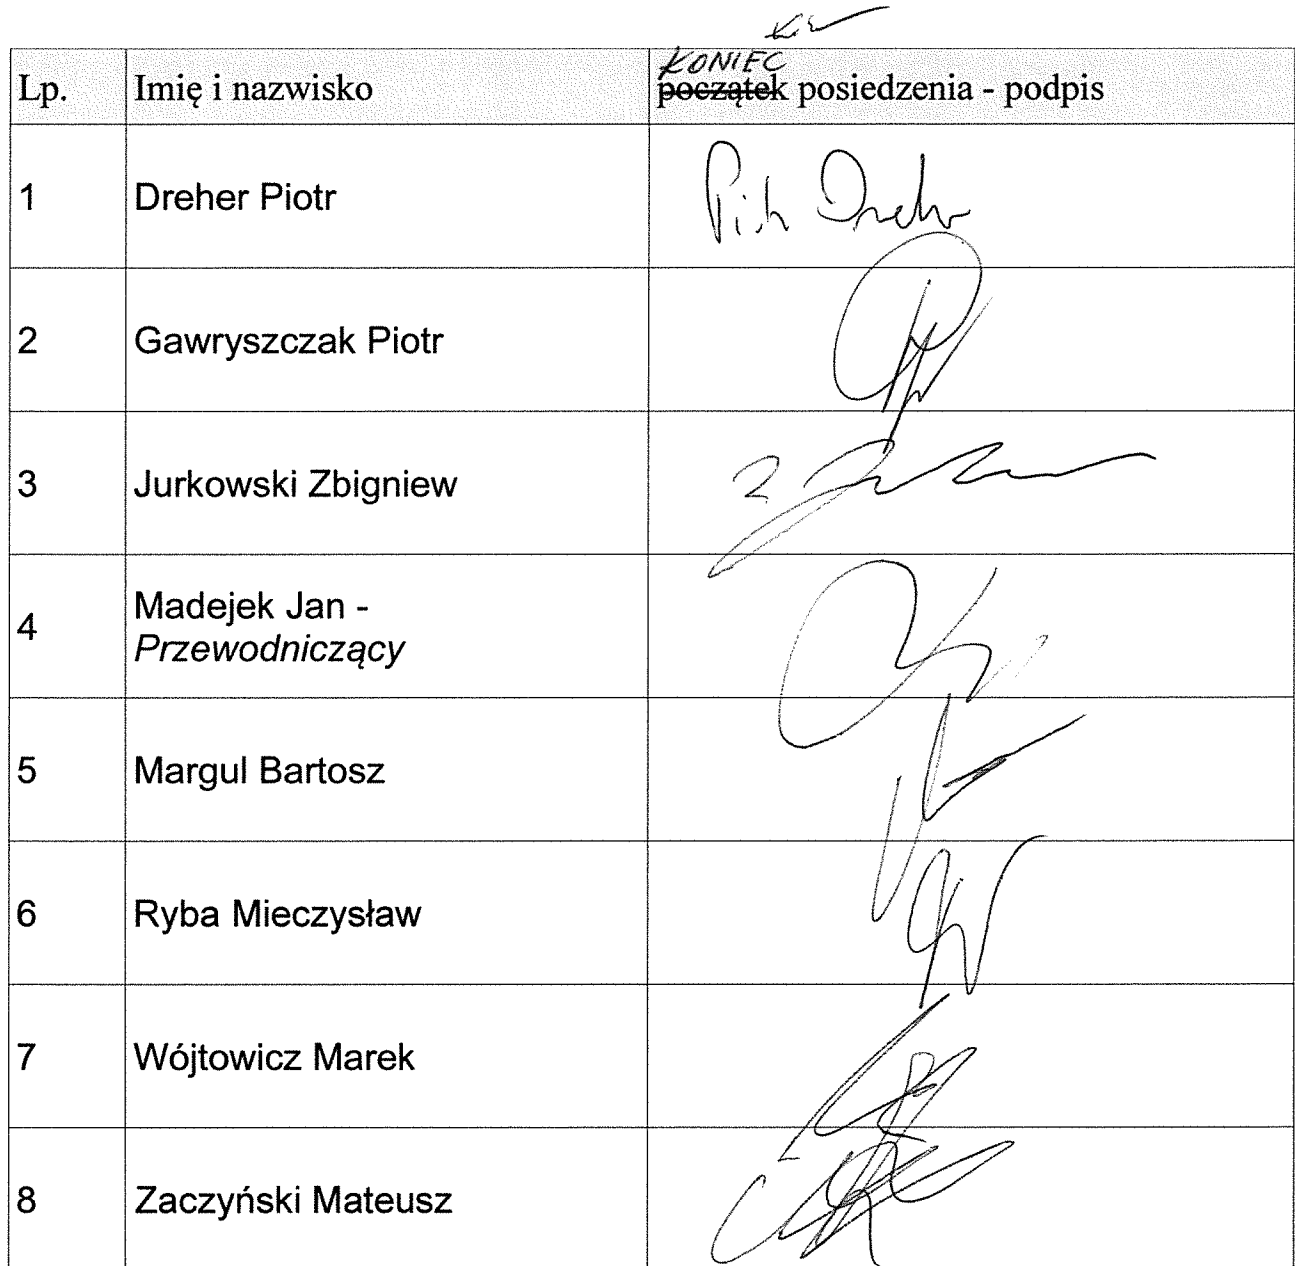 KONIEC
Lp. Imię i nazwisko początek posiedzenia - podpis
1 Dreher Piotr Piotr Dreher
2 Gawryszczak Piotr
3 Jurkowski Zbigniew
4 Madejek Jan -
Przewodniczący
5 Margul Bartosz
6 Ryba Mieczysław
7 Wójtowicz Marek
8 Zaczyński Mateusz